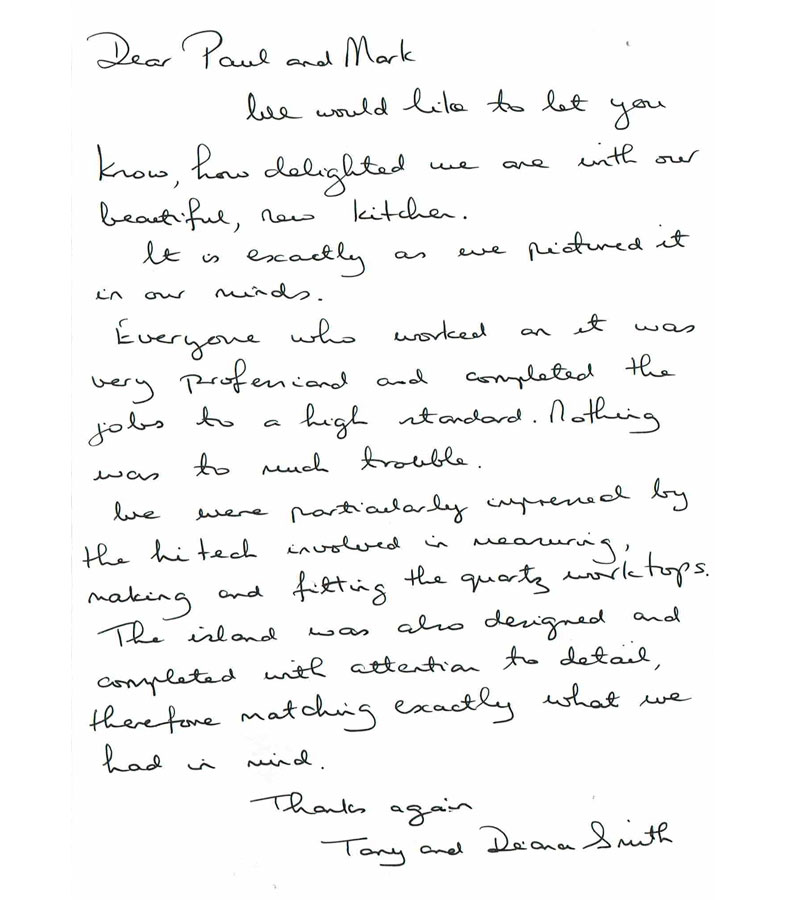 Dear Paul and Mark
We would like to let you
know, how delighted we are with our
beautiful, new kitchen.
It is exactly as we pictured it
in our minds.
Everyone who worked on it was
very professional and completed the
jobs to a high standard. Nothing
was to much trouble.
We were particularly impressed by
the hi tech involved in measuring,
making and fitting the quartz worktops.
The island was also designed and
completed with attention to detail,
therefore matching exactly what we
had in mind.
Thanks again
Tony and Deana Smith